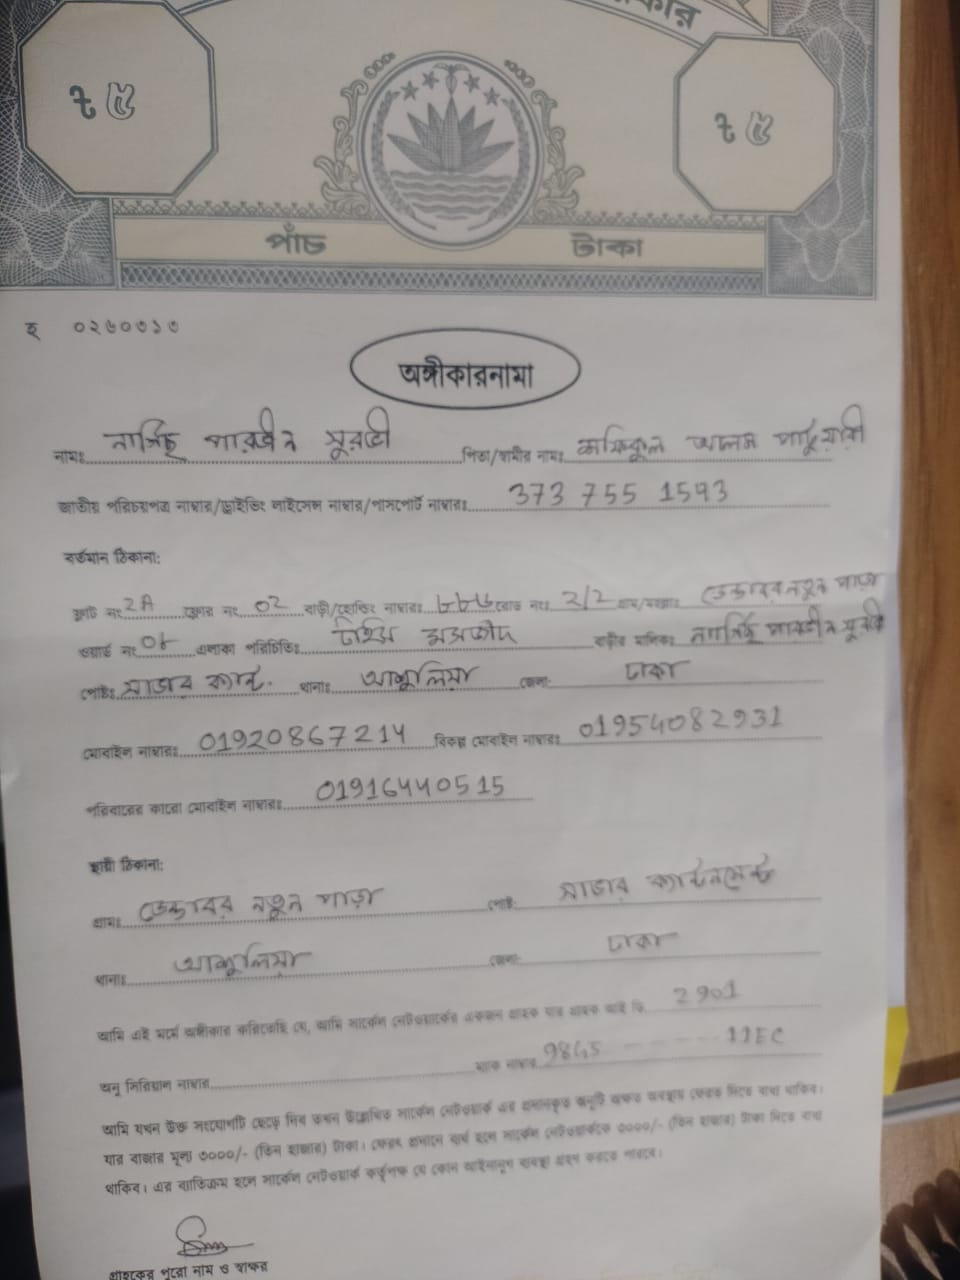 কার
৳ ৫ ৳ ৫
পাঁচ টাকা
হ ০২৬০৩১৩
অঙ্গীকারনামা
নামঃ নার্গিছ পারভীন সুরভী পিতা/স্বামীর নামঃ পাটুয়ারী
জাতীয় পরিচয়পত্র নাম্বার/ড্রাইভিং লাইসেন্স নাম্বার/পাসপোর্ট নাম্বারঃ 373 755 1593
বর্তমান ঠিকানা:
ফ্লাট নং 2A ফ্লোর নং 02 বাড়ী/হোল্ডিং নাম্বারঃ ৮৮৬ রোড নংঃ 2/2 গ্রাম/মহল্লাঃ ডেন্ডাবর নতুন পাড়া
ওয়ার্ড নং 08 এলাকা পরিচিতিঃ বাড়ীর মালিকঃ নার্গিছ পারভীন সুরভী
পোষ্টঃ সাভার ক্যান্ট. থানাঃ আশুলিয়া জেলাঃ ঢাকা
মোবাইল নাম্বারঃ 01920867214 বিকল্প মোবাইল নাম্বারঃ 01954082931
পরিবারের কারো মোবাইল নাম্বারঃ 01916440515
স্থায়ী ঠিকানা:
গ্রামঃ ডেন্ডাবর নতুন পাড়া পোষ্ট: সাভার ক্যান্টনমেন্ট
থানাঃ আশুলিয়া জেলা: ঢাকা
আমি এই মর্মে অঙ্গীকার করিতেছি যে, আমি সার্কেল নেটওয়ার্কের একজন গ্রাহক যার গ্রাহক আই ডি. 2901
অনু সিরিয়াল নাম্বার ম্যাক নাম্বার 9845 - - - - - - 11EC
আমি যখন উক্ত সংযোগটি ছেড়ে দিব তখন উল্লেখিত সার্কেল নেটওয়ার্ক এর প্রদানকৃত অনুটি অক্ষত অবস্থায় ফেরত দিতে বাধ্য থাকিব।
যার বাজার মূল্য ৩০০০/- (তিন হাজার) টাকা। ফেরৎ প্রদানে ব্যর্থ হলে সার্কেল নেটওয়ার্ককে ৩০০০/- (তিন হাজার) টাকা দিতে বাধ্য
থাকিব। এর ব্যতিক্রম হলে সার্কেল নেটওয়ার্ক কর্তৃপক্ষ যে কোন আইনানুগ ব্যবস্থা গ্রহন করতে পারবে।
গ্রাহকের পুরো নাম ও স্বাক্ষর